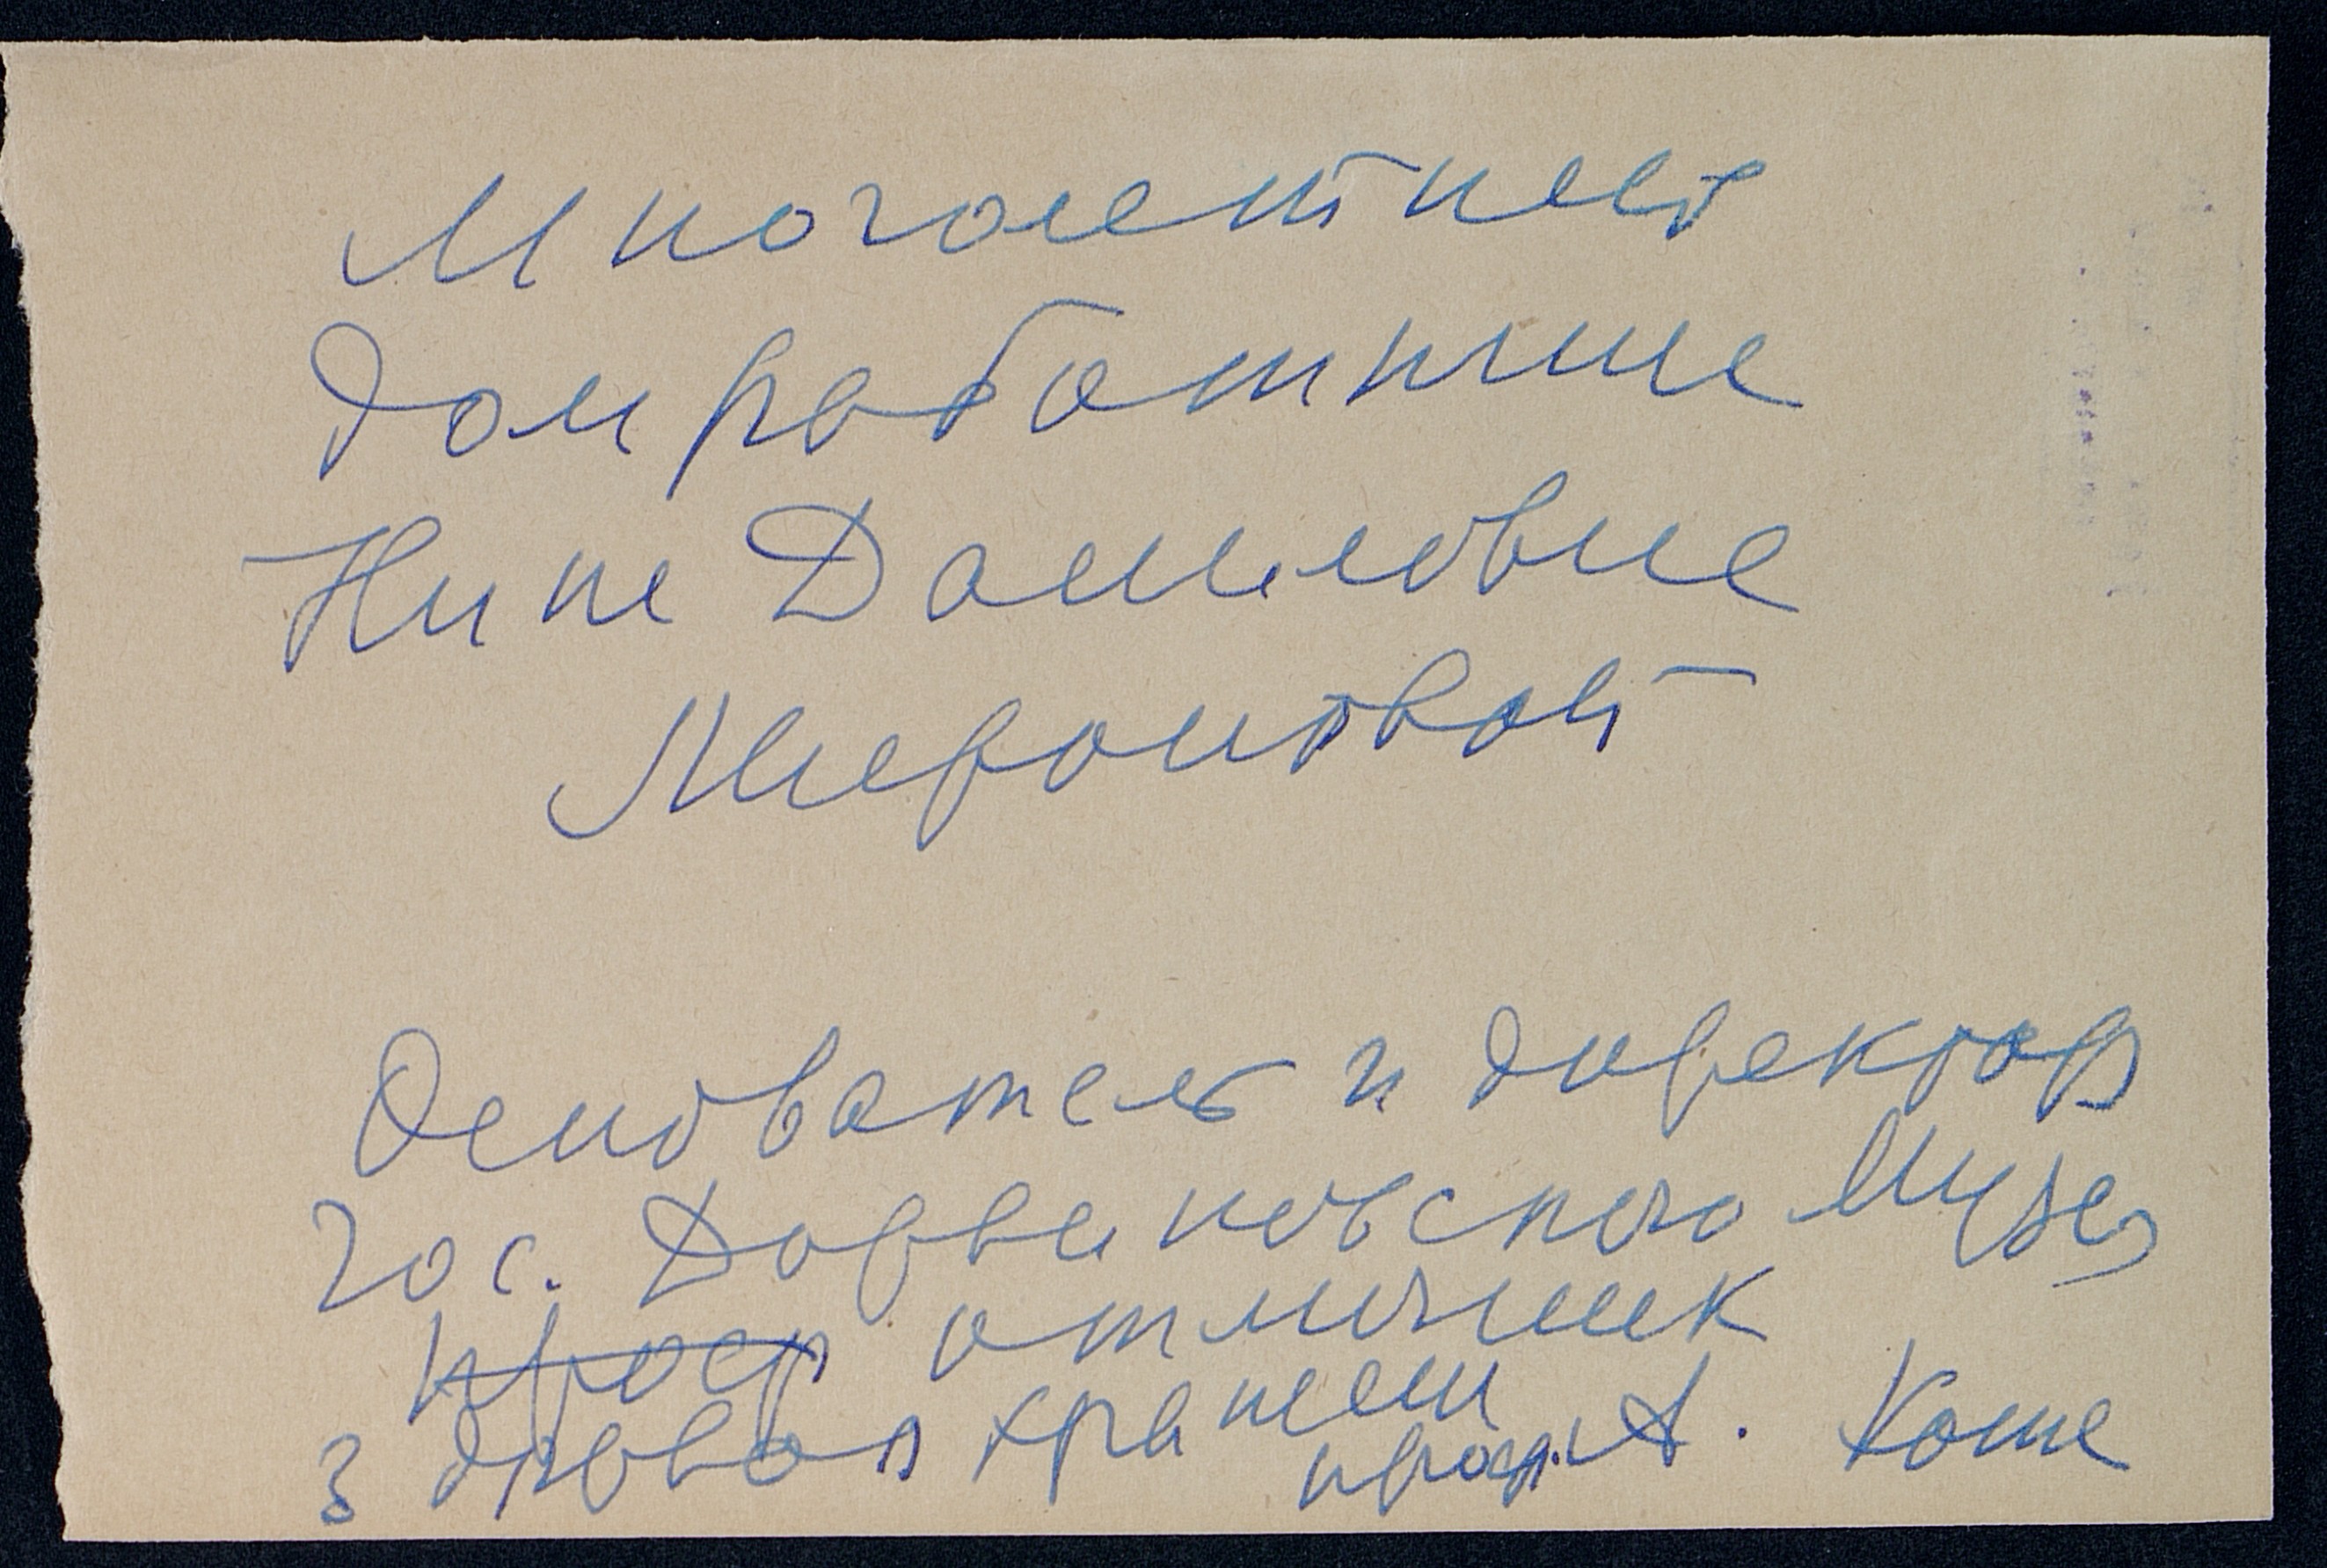 Многолетней
домработнице
Нине Даниловне
Мироновой
Основатель и директор
Гос. Дарвиновского Музея
проф отличник
здравоохранени
проф. А. Котс